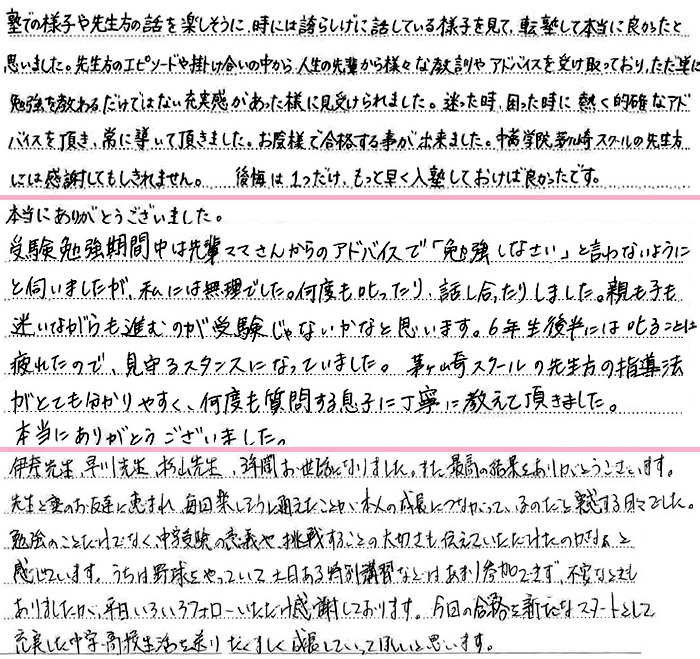 塾での様子や先生方の話を楽しそうに、時には誇らしげに話している様子を見て、転塾して本当に良かったと
思いました。先生方のエピソードや掛け合いの中から、人生の先輩から様々な教訓やアドバイスを受け取っており、ただ単に
勉強を教わるだけではない充実感があった様に見受けられました。迷った時、困った時に熱く的確なアド
バイスを頂き、常に導いて頂きました。お陰様で合格する事が出来ました。中萬学院茅ヶ崎スクールの先生方
には感謝してもしきれません。 後悔は1つだけ、もっと早く入塾しておけば良かったです。
本当にありがとうございました。
受験勉強期間中は先輩ママさんからのアドバイスで「勉強しなさい」と言わないように
と伺いましたが、私には無理でした。何度も叱ったり、話し合ったりしました。親も子も
迷いながらも進むのが受験じゃないかなと思います。6年生後半には叱ることに
疲れたので、見守るスタンスになっていました。 茅ヶ崎スクールの先生方の指導法
がとても分かりやすく、何度も質問する息子に丁寧に教えて頂きました。
本当にありがとうございました。
伊奈先生、早川先生、杉山先生、3年間お世話になりました。また最高の結果をありがとうございます。
先生と塾のお友達に恵まれ、毎回楽しそうに通えたことが本人の成長につながっているのだと実感する日々でした。
勉強のことだけでなく、中学受験の意義や、挑戦することの大切さも伝えていただけたのかなぁと
感じています。うちは野球をやっていて土日ある特別講習などはあまり参加できず、不安なときも
ありましたが、平日いろいろフォローいただけ感謝しております。今回の合格を新たなスタートとして
充実した中学・高校生活を送り、たくましく成長していってほしいと思います。